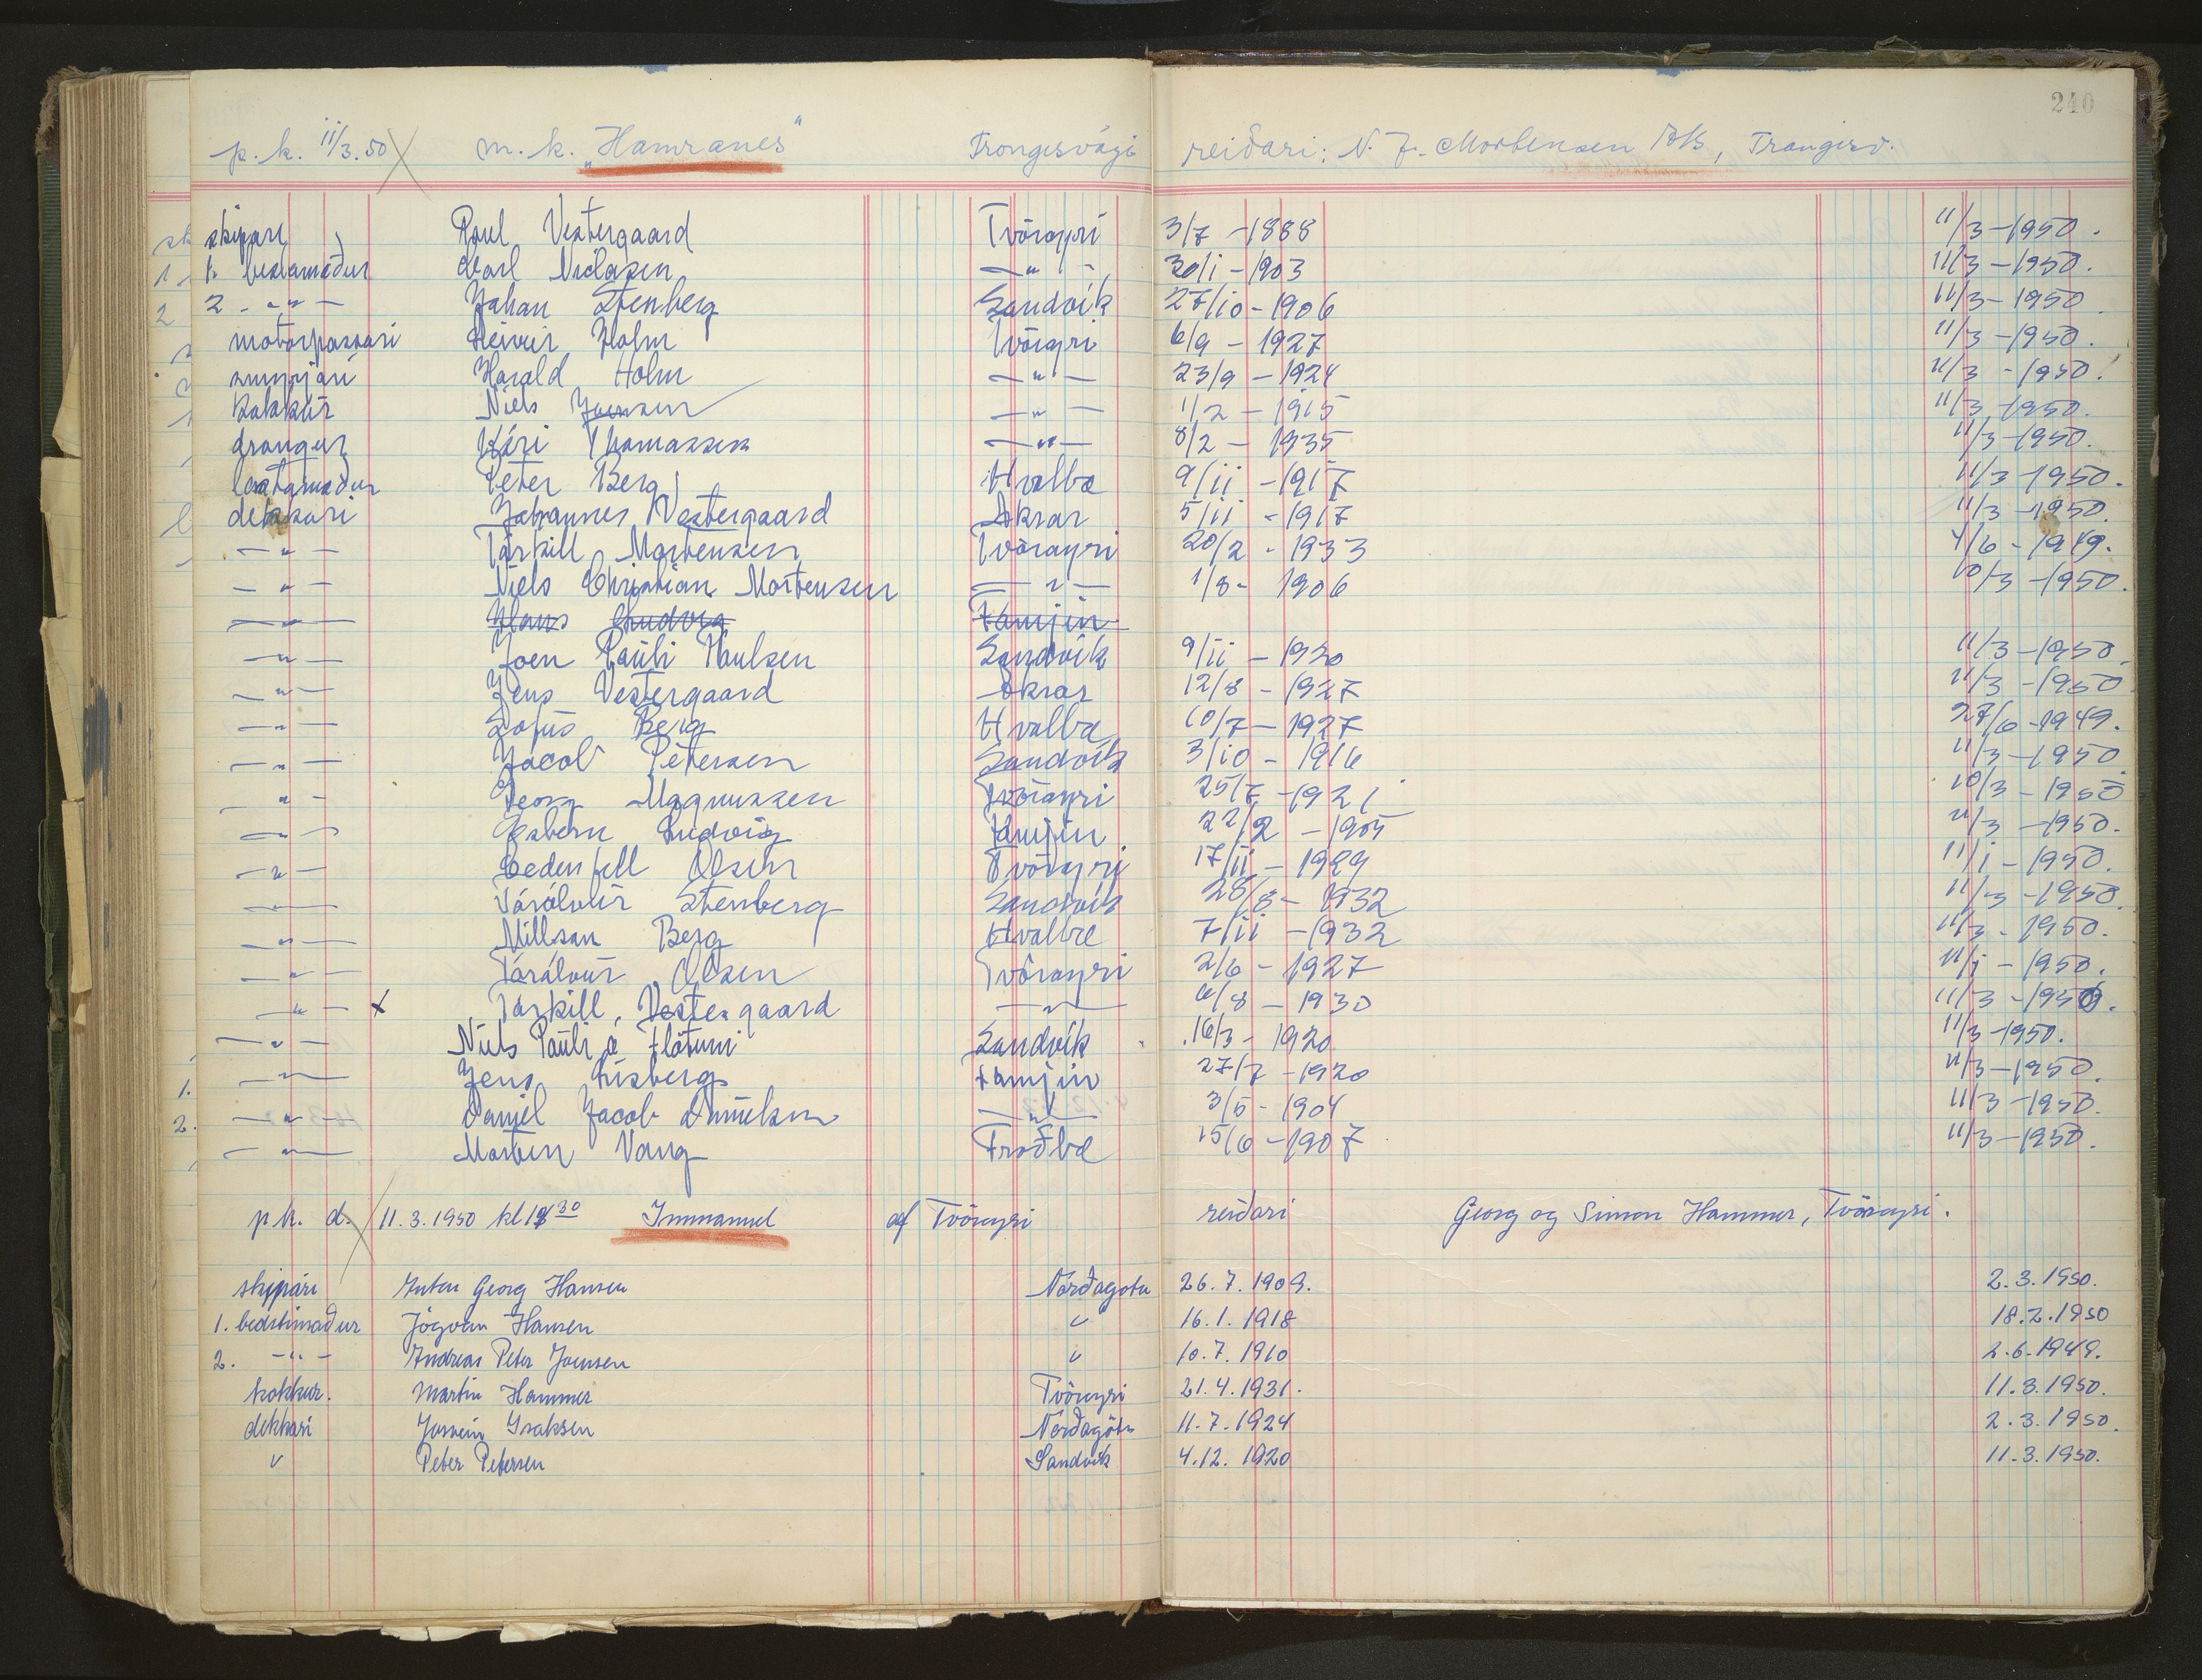 240
p.k. 11/3.50 m.k. „Hamranes“ Trongisvági reiðari: N. J. Mortensen A/S, Trangisv.
skipari Poul Vestergaard Tvöroyri 3/7 - 1888 11/3 - 1950.
1. bestamaður Karl Niclasen — " — 30/1 - 1903 11/3 - 1950.
2. — " — Johan Stenberg Sandvík 27/10 - 1906 11/3 - 1950
motorpassari Holm Tvöroyri 6/9 - 1927 11/3 - 1950.
smyrjari Harald Holm — " — 23/9 - 1924 11/3 - 1950.
kokkur Niels Joensen — " — 1/2 - 1915 11/3 - 1950.
drongur Kári Thomassen — " — 8/2 - 1935 11/3 - 1950.
lastamaður Peter Berg Hvalba 9/11 - 1917 11/3 - 1950.
dekkari Johannes Vestergaard Akrar 5/11 - 1917 11/3 - 1950.
— " — Tárkill Mortensen Tvöroyri 20/2 - 1933 4/6 - 1949.
— " — Niels Christian Mortensen — " — 1/8 - 1906 10/3 - 1950.
— " — Hans Ludvig Famjin
— " — Joen Pauli Poulsen Sandvík 9/11 - 1920 11/3 - 1950
— " — Jens Vestergaard Akrar 12/8 - 1927 11/3 - 1950
— " — Sofus Berg Hvalba 10/7 - 1927 27/6 - 1949.
— " — Jacob Petersen Sandvík 3/10 - 1916 11/3 - 1950
— " — Georg Magnussen Tvöroyri 25/7 - 1921 10/3 - 1950
— " — Esbern Ludvig Famjin 22/2 - 1905 11/3 - 1950.
— " — Olsen Tvöroyri 17/11 - 1929 11/1 - 1950.
— " — Tórálvur Stenberg Sandvík 28/8 - 1932 11/3 - 1950
— " — Millson Berg Hvalba 7/11 - 1932 11/3 - 1950.
— " — Tórálvur Olsen Tvöroyri 2/6 - 1927 11/1 - 1950.
— " — x Tárkill Vestergaard — " — 6/8 - 1930 11/3 - 1950.
— " — Niels Pauli á Fløtuni Sandvík 16/3 - 1920 11/3 - 1950.
— " — Jens Lisberg Famjin 27/7 - 1920 11/3 - 1950.
— " — Daniel Jacob — " — 3/5 - 1904 11/3 - 1950.
— " — Morten Vang Froðba 15/6 - 1907 11/3 - 1950.
p.k. d. 11.3.1950 kl 18 30 Immanuel af Tvöroyri reiðari Georg og Simon Hammer, Tvöroyri.
skipari Anton Georg Hansen Norðagøtu 26.7.1909. 2.3.1950.
1. bedstimaður Jógvan Hansen " 16.1.1918 18.2.1950
2. — " — Andreas Peter Joensen " 10.7.1910 2.6.1949.
kokkur. Martin Hammer Tvöroyri 21.4.1931. 11.3.1950.
dekkari Isaksen Norðagøtu 11.7.1924 2.3.1950.
" Peter Petersen Sandvík 4.12.1920 11.3.1950.